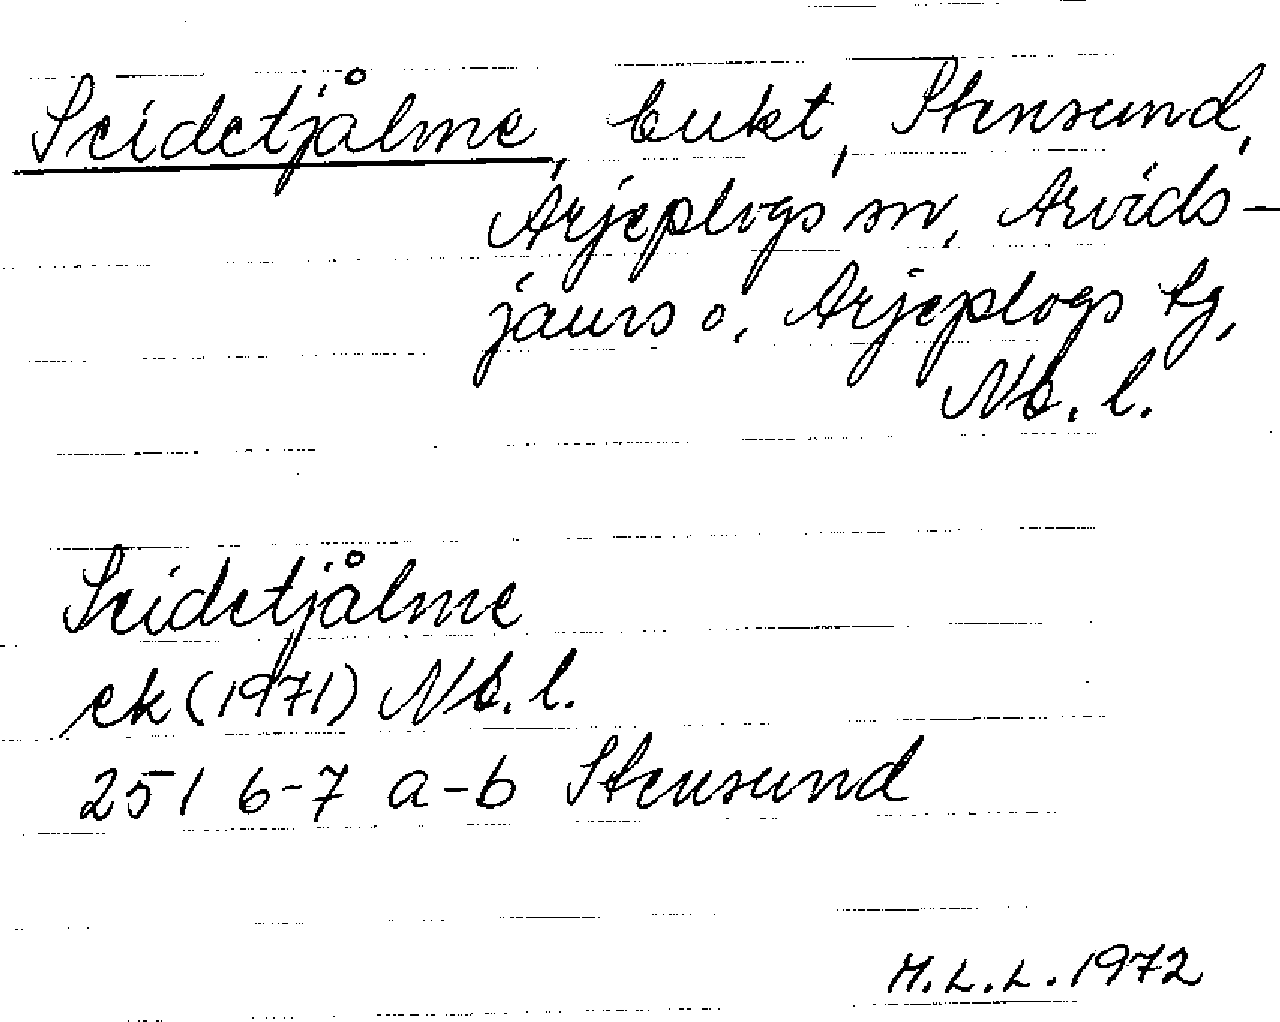 Seidetjålme, bukt, Stensund,
Arjeplogs sn, Arvids-
jaurs o. Arjeplogs tg,
Nb. l.
Seidetjålme
ek (1971) Nb. l.
251 6-7 a-b Stensund
M.L.L. 1972